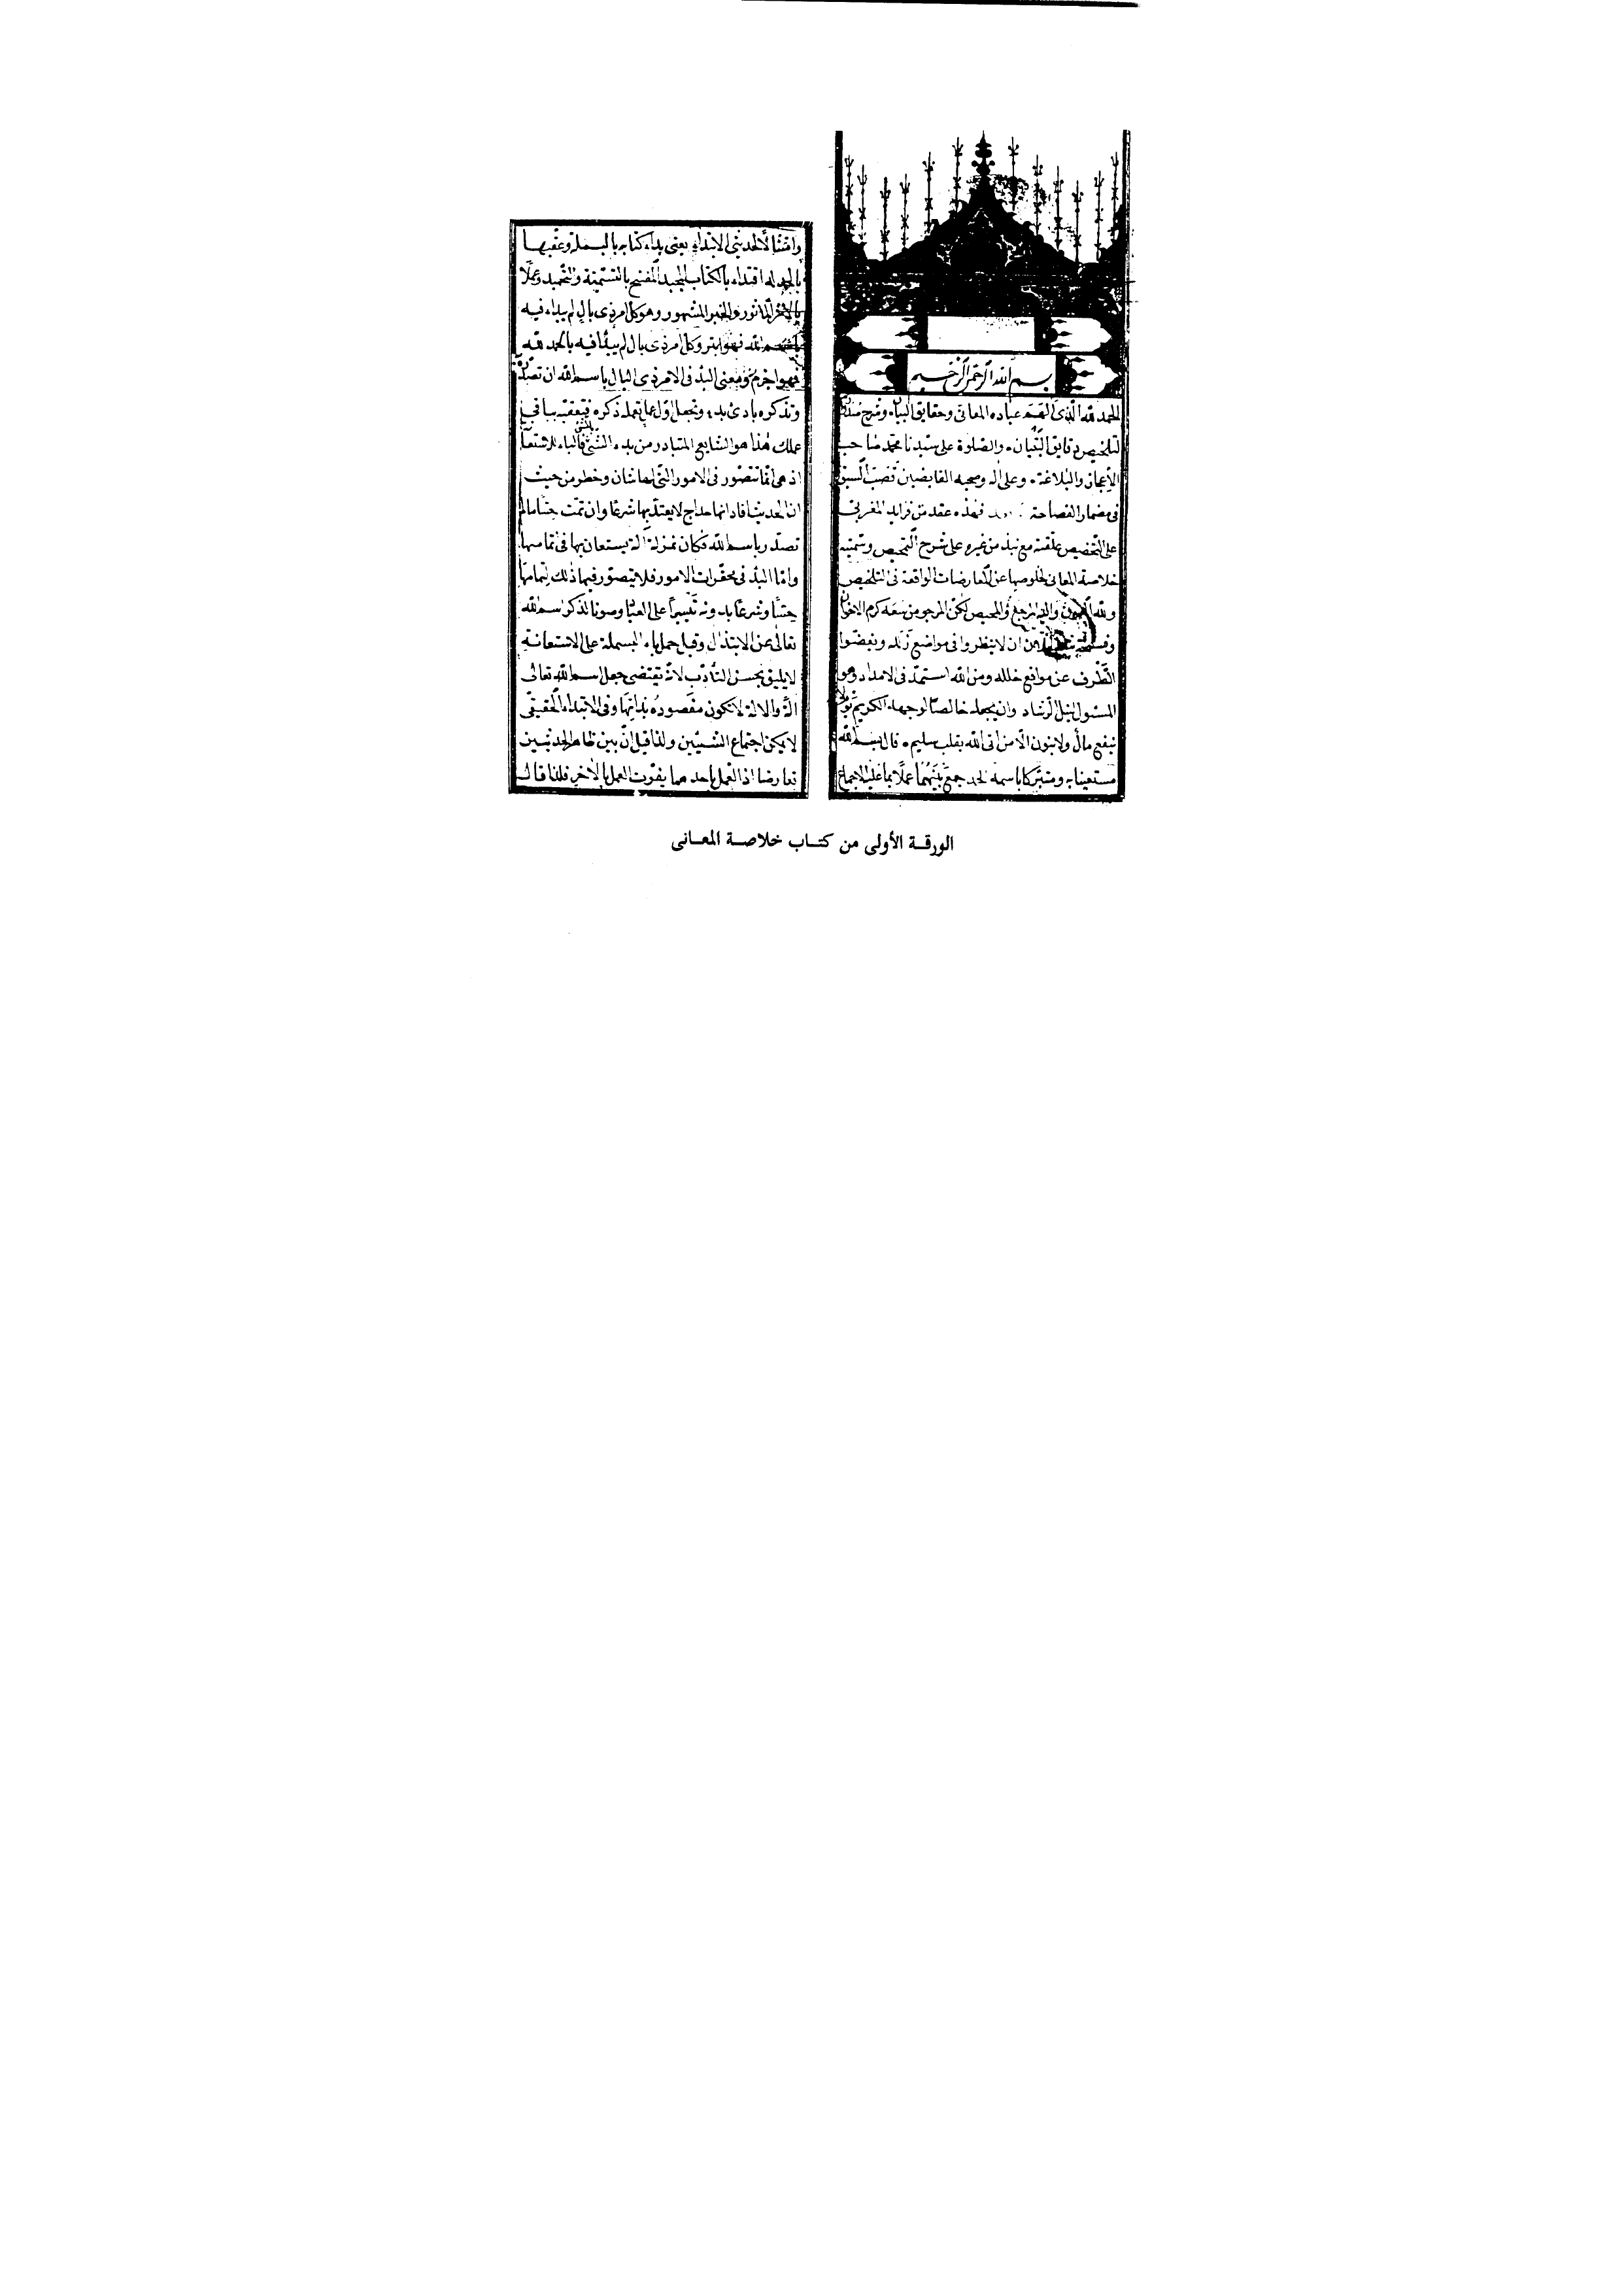 بسم الله الرحمن الرحيم
الحمد لله الذى الهم عباده المعانى وحقايق البيان وشرح
لتلخيص دقايق التبيان والصلوة على سيدنا محمد صاحب
الاعجاز والبلاغة وعلى اله وصحبه القابضين قصب السبق
فى مضمار الفصاحة فهذه عقد من فرايد المغربى
على التخصيص علقته مع نبذ من غيره على شرح التلخيص وسميته
خلاصة المعانى لخلوصها عن المعارضات الواقعة فى التلخيص
ولله واليه المرجع والمحيص لكن المرجو من سعة كرم الاخوان
ان لا ينظروا فى مواضع زلله ويغضوا
الطرف عن مواقع خلله ومن الله استمد فى الامداد وهو
المسئول لنيل الرشاد وان يجعله خالصا لوجهه الكريم يوم لا
ينفع مال ولا بنون الا من اتى الله بقلب سليم قال بسم الله
مستعينا به ومتبركا باسمه الحمد جمع بينهما عملا بما عليه الاجماع
وامتثالا لحديثى الابتداء يعنى بداء كتابه بالبسملة وعقبها
بالحمد له اقتداء بالكتاب المجيد المفتتح بالتسمية والتحميد وعملا
بالاثر المأثور والخبر المشهور وهو كل امر ذى بال لم يبداء فيه
الله فهو ابتر وكل امر ذى بال لم يبدأ فيه بالحمد لله
فهو اجزم ومعنى البدء فى الامر ذى البال باسم الله ان تصدره
وتذكره بادئ بدء وتجعل اول عملك ذكره فتعقبه بباقى
عملك هذا هو الشايع المتبادر من بدء الشئ بالشئ فالباء للاستعانة
اذ هى انما تتصور فى الامور التى لها شان وخطر من حيث
ان الحديث افاد انها خداج لا يعتد بها شرعا وان تمت حسا ما لم
تصدر باسم الله فكان بمنزلة الة يستعان بها فى تمامها
واما البدء فى محقرات الامور فلا يتصور فيها ذلك لتمامها
حسا وشرعا بدونه تيسيرا على العباد وصونا لذكر اسم الله
تعالى عن الابتذال وقيل حمل باء البسملة على الاستعانة
لا يليق بحسن التأدب لانه يقتضى جعل اسم الله تعالى
الة والالة لا تكون مقصودة بذاتها وفى الابتداء الحقيقى
لا يمكن اجتماع الشيئين ولذا قيل ان بين ظاهر الحديثين
تعارضا اذ العمل باحدهما يفوت العمل بالآخر فلذا قال
الورقة الأولى من كتاب خلاصة المعانى